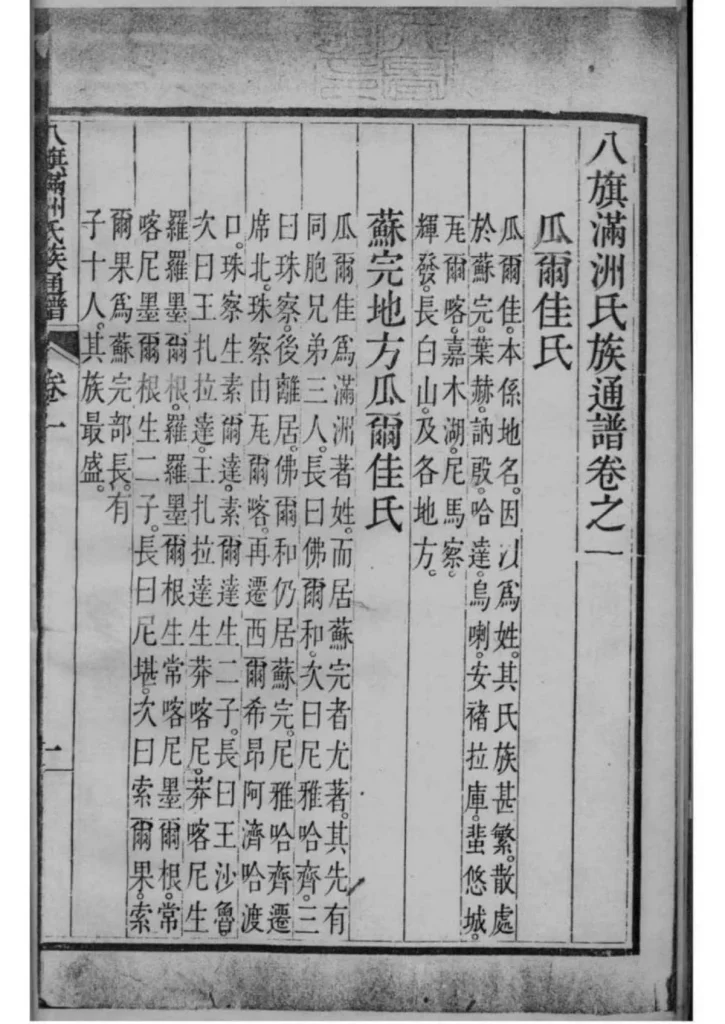 八旗滿洲氏族通譜卷之一
瓜爾佳氏
瓜爾佳。本係地名。因以爲姓。其氏族甚繁。散處
於蘇完。葉赫。訥殷。哈達。烏喇。安褚拉庫。蜚悠城。
瓦爾喀。嘉木湖。尼馬察。
輝發。長白山。及各地方。
蘇完地方瓜爾佳氏
瓜爾佳爲滿洲著姓。而居蘇完者尤著。其先有
同胞兄弟三人。長曰佛爾和。次曰尼雅哈齊。三
曰珠察。後離居。佛爾和仍居蘇完。尼雅哈齊遷
席北。珠察由瓦爾喀。再遷西爾希昂阿濟哈渡
口。珠察生素爾達。素爾達生二子。長曰王沙魯。
次曰王扎拉達。王扎拉達生莽喀尼。莽喀尼生
羅羅墨爾根。羅羅墨爾根生常喀尼墨爾根。常
喀尼墨爾根生二子。長曰尼堪。次曰索爾果。索
爾果爲蘇完部長。有
子十人。其族最盛。
八旗滿洲氏族通譜 卷一 一